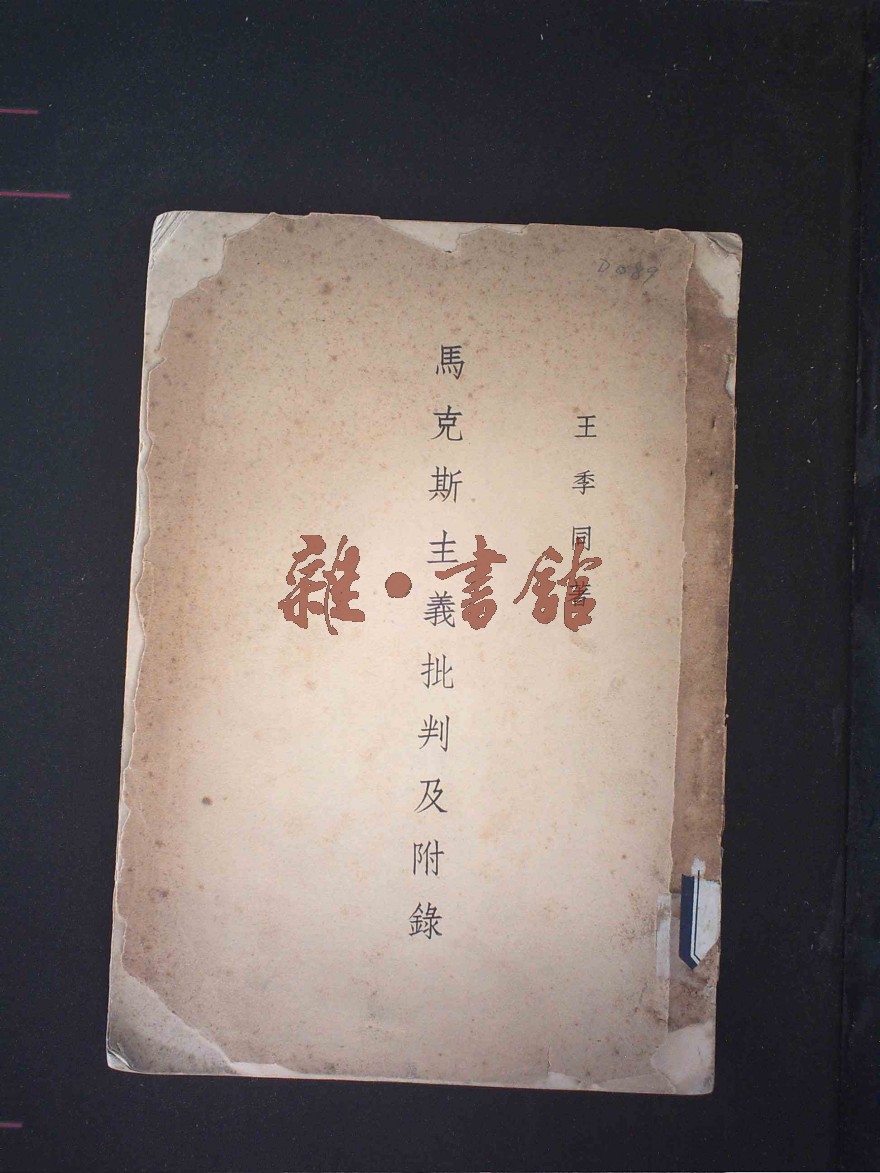 D089
王季同著
馬克斯主義批判及附錄
雜·書館